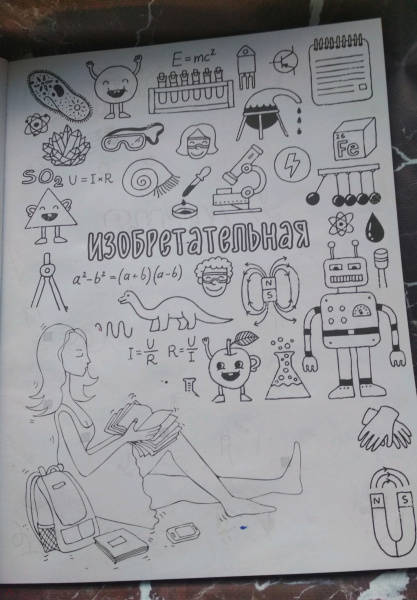 E=mc²
26
Fe
SO₂ U=I·R
ИЗОБРЕТАТЕЛЬНАЯ
a²-b²=(a+b)(a-b)
N
S
I=U/R R=U/I
N S